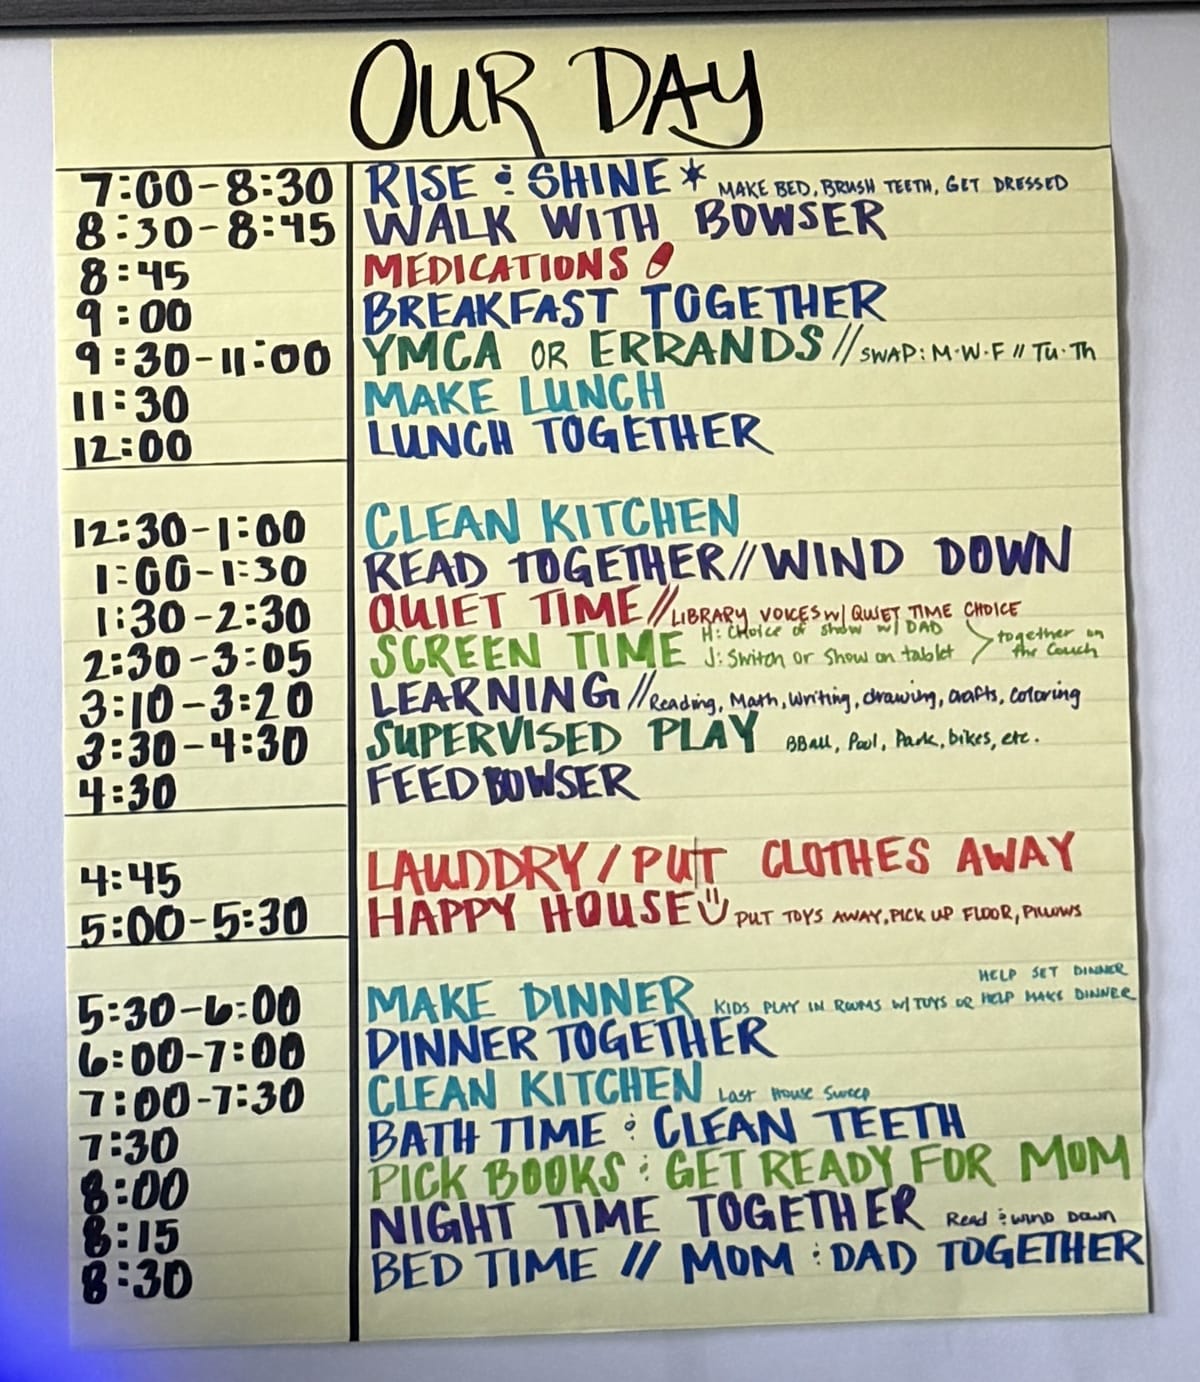 OUR DAY
7:00-8:30 RISE & SHINE * MAKE BED, BRUSH TEETH, GET DRESSED
8:30-8:45 WALK WITH BOWSER
8:45 MEDICATIONS
9:00 BREAKFAST TOGETHER
9:30-11:00 YMCA OR ERRANDS // SWAP: M·W·F // TU·TH
11:30 MAKE LUNCH
12:00 LUNCH TOGETHER
12:30-1:00 CLEAN KITCHEN
1:00-1:30 READ TOGETHER // WIND DOWN
1:30-2:30 QUIET TIME // LIBRARY VOICES w/ QUIET TIME CHOICE
2:30-3:05 SCREEN TIME H: Choice of show w/ DAD
J: Switch or Show on tablet
together on
the couch
3:10-3:20 LEARNING // Reading, Math, Writing, drawing, crafts, coloring
3:30-4:30 SUPERVISED PLAY BBall, Pool, Park, bikes, etc.
4:30 FEED BOWSER
4:45 LAUDDRY / PUT CLOTHES AWAY
5:00-5:30 HAPPY HOUSE PUT TOYS AWAY, PICK UP FLOOR, PILLOWS
HELP SET DINNER
5:30-6:00 MAKE DINNER KIDS PLAY IN ROOMS W/ TOYS OR HELP MAKE DINNER
6:00-7:00 DINNER TOGETHER
7:00-7:30 CLEAN KITCHEN Last House Sweep
7:30 BATH TIME & CLEAN TEETH
8:00 PICK BOOKS & GET READY FOR MOM
8:15 NIGHT TIME TOGETHER Read & WIND Down
8:30 BED TIME // MOM & DAD TOGETHER